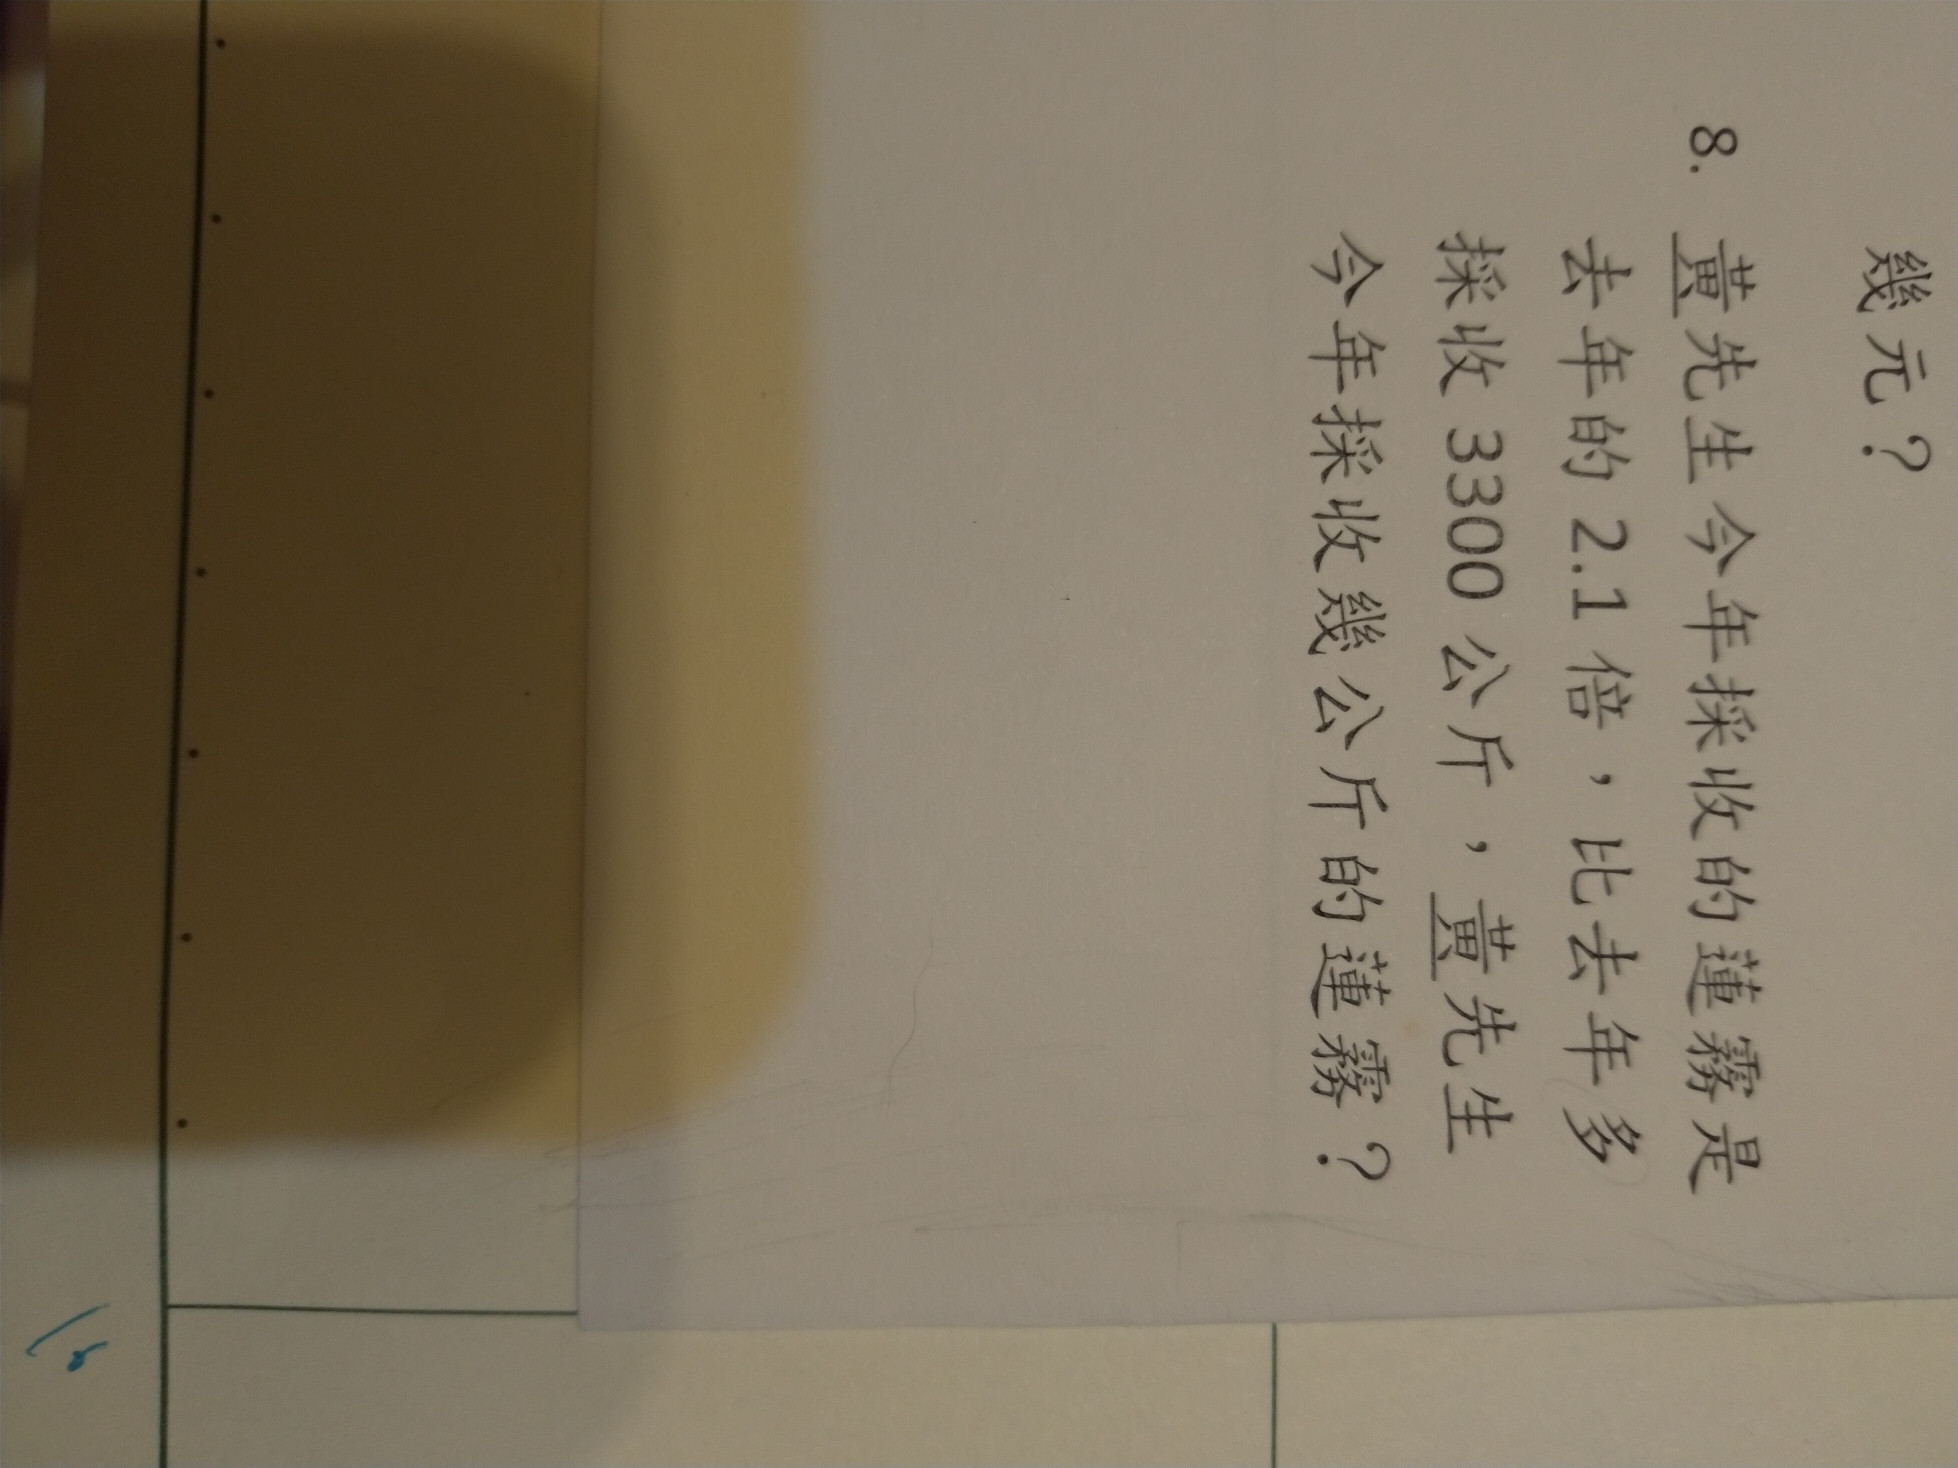 幾元？
8. 黃先生今年採收的蓮霧是
去年的 2.1 倍，比去年多
採收 3300 公斤，黃先生
今年採收幾公斤的蓮霧？